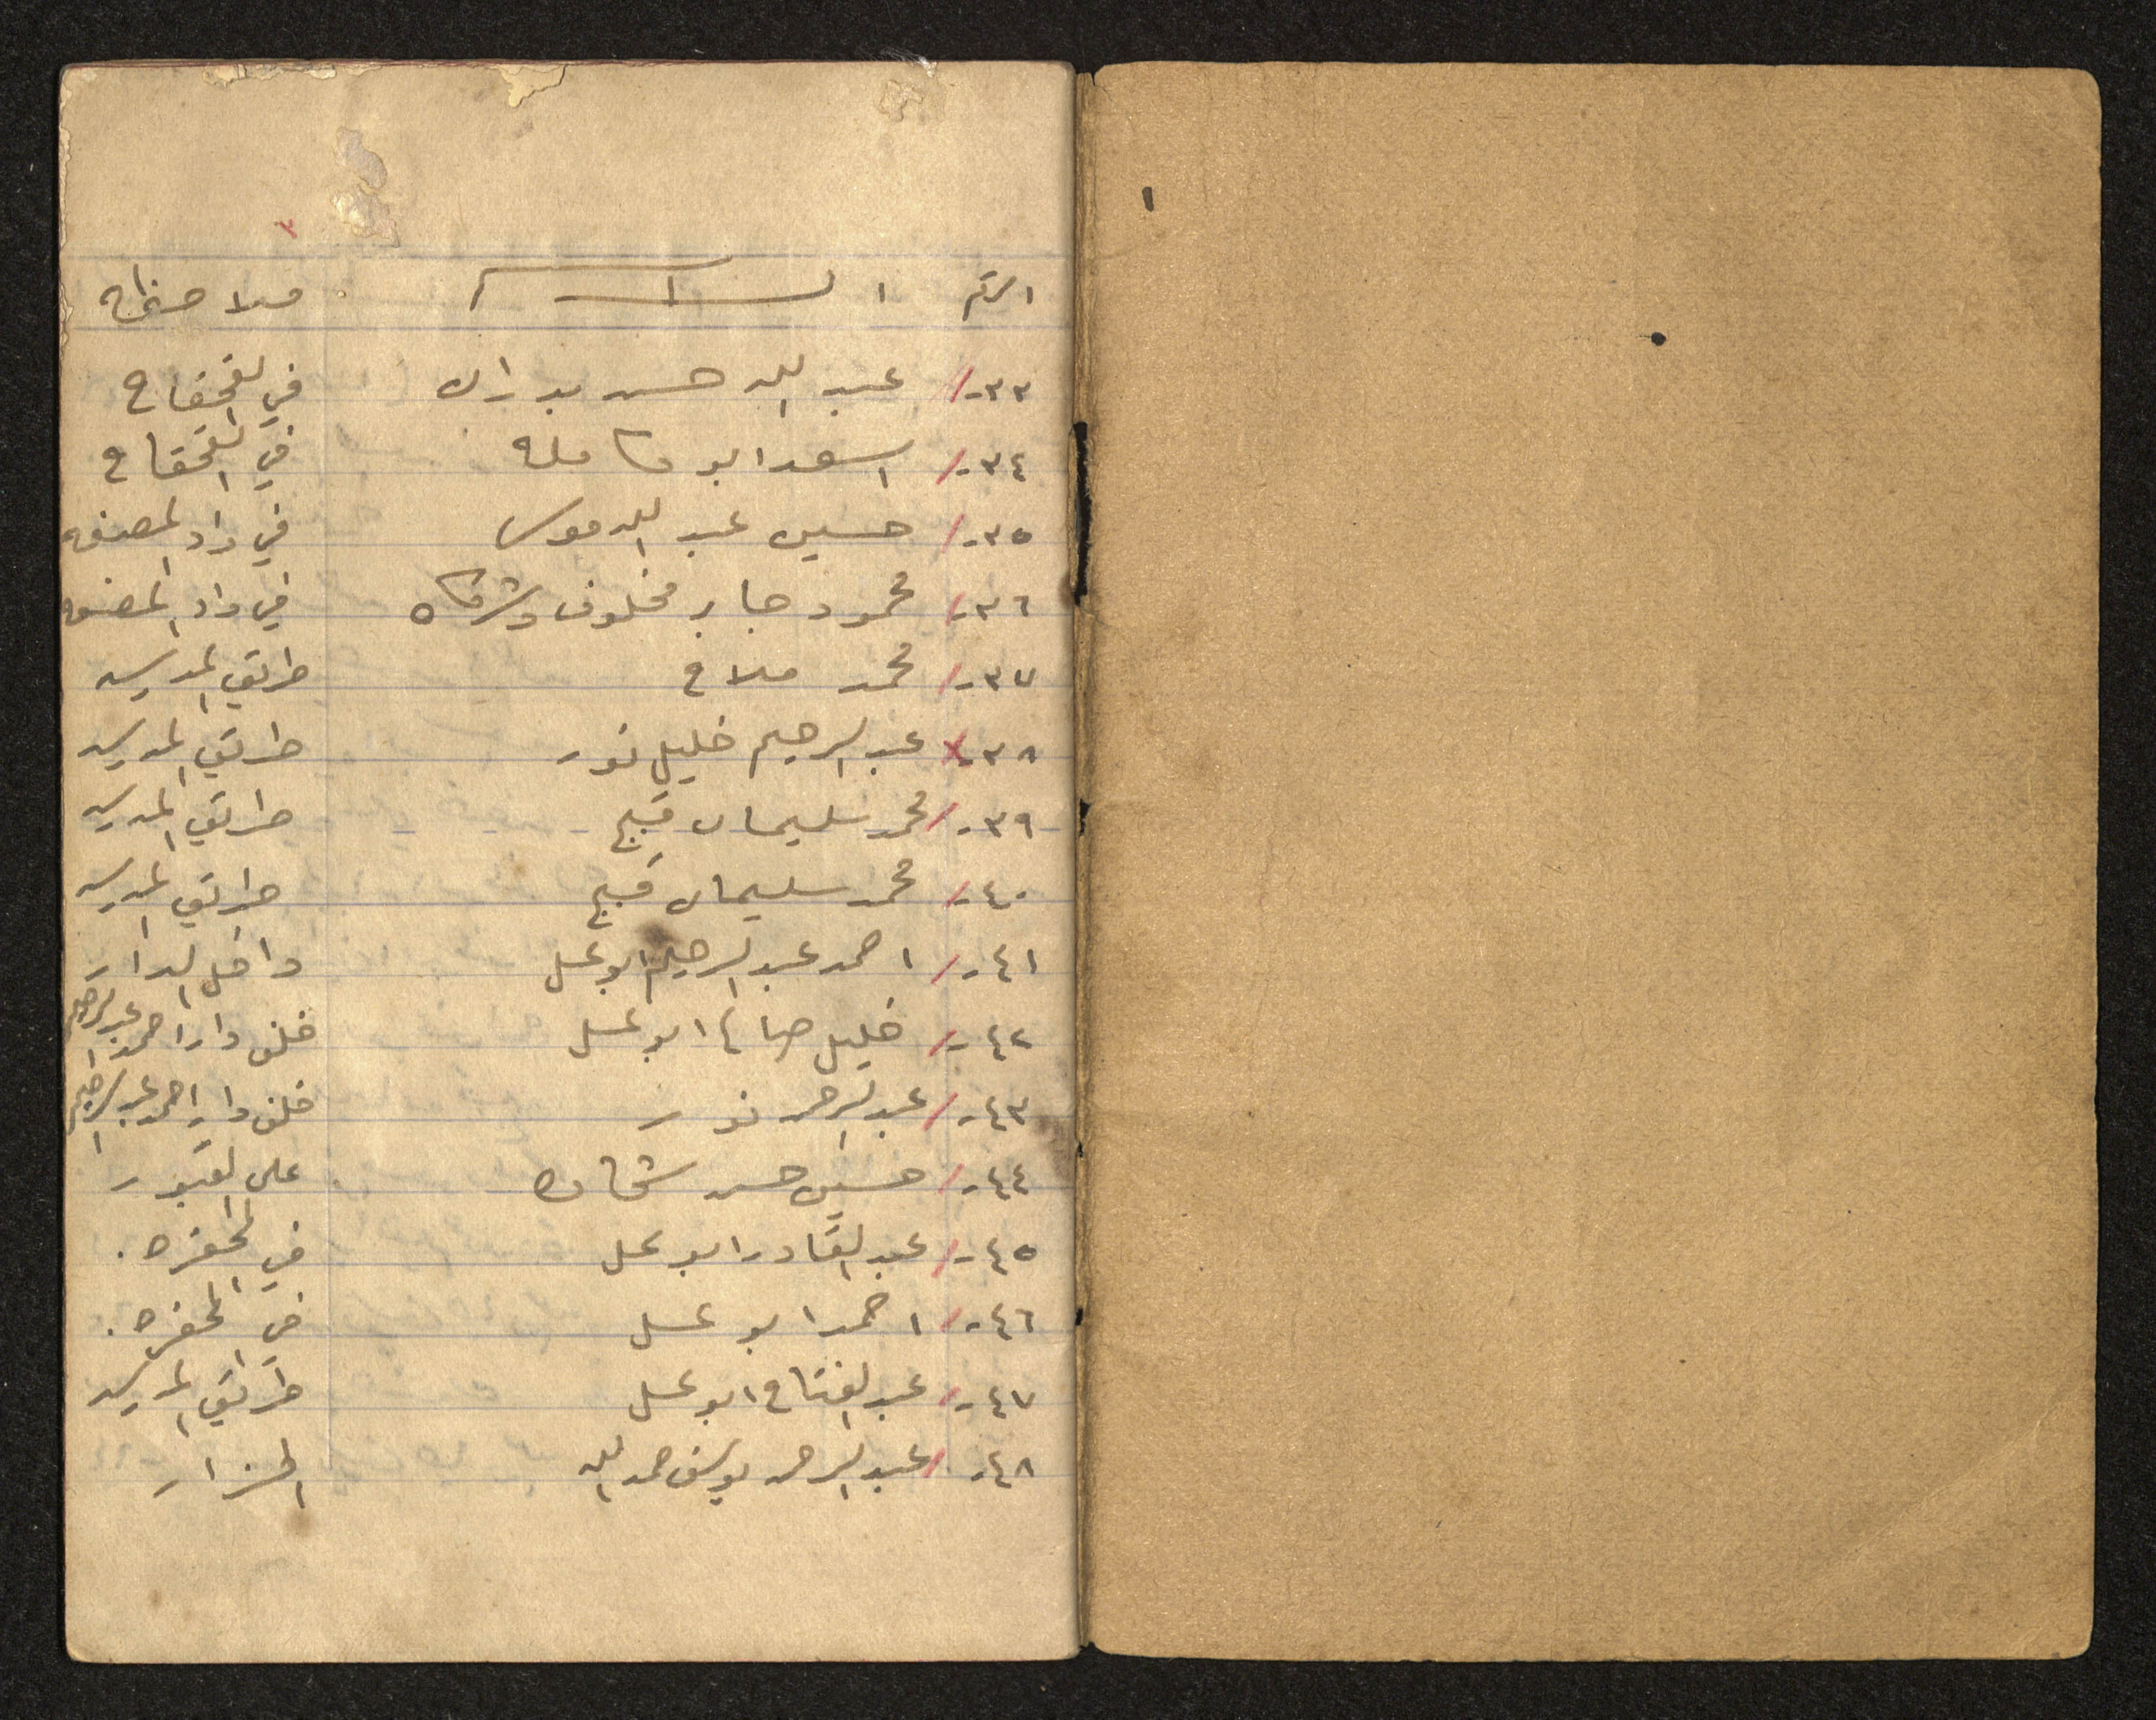 ٣
الرقم الاسم ملاحظات
٣٣- / عبد الله حسن بدران في القحقاح
٣٤- / اسعد ابو كامله في القحقاح
٣٥- / حسين عبد الله موسى في واد المصنعه
٣٦- / محمود جابر مخلوف وشركاه في واد المصنعه
٣٧- / محمد ملاح طريق المدرسه
٣٨- x عبد الرحيم خليل نور طريق المدرسه
٣٩- / محمد سليمان قبج طريق المدرسه
٤٠- / محمد سليمان قبج طريق المدرسه
٤١- / احمد عبد الرحيم ابو عسل داخل الدار
٤٢- / خليل صالح ابو عسل خلف دار احمد عبد الرحيم
٤٣- / عبد الرحمن نور خلف دار احمد عبد الرحيم
٤٤- / حسين حسن شحاده على القبور
٤٥- / عبد القادر ابو عسل في الحفره .
٤٦- / احمد ابو عسل في الحفره .
٤٧- / عبد الفتاح ابو عسل طريق المدرسه
٤٨- / عبد الرحمن يوسف حمد الله